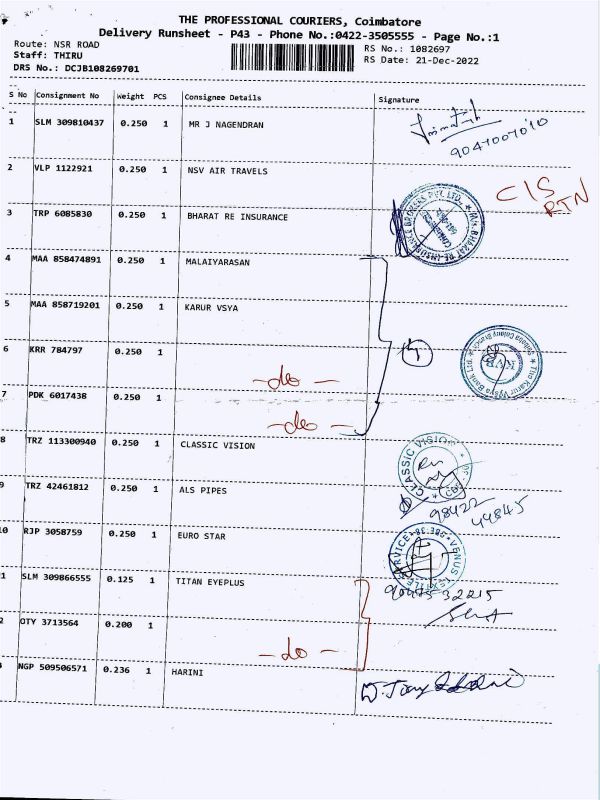 THE PROFESSIONAL COURIERS, Coimbatore
Delivery Runsheet - P43 - Phone No.:0422-3505555 - Page No.:1
Route: NSR ROAD
Staff: THIRU
DRS No.: DCJB108269701
RS No.: 1082697
RS Date: 21-Dec-2022
S No Consignment No Weight PCS Consignee Details Signature
1 SLM 309810437 0.250 1 MR J NAGENDRAN
9047007010
2 VLP 1122921 0.250 1 NSV AIR TRAVELS
C/S
RTN
3 TRP 6085830 0.250 1 BHARAT RE INSURANCE
4 MAA 858474891 0.250 1 MALAIYARASAN
5 MAA 858719201 0.250 1 KARUR VSYA
6 KRR 784797 0.250 1
-do-
4
The Karur Vysya Bank Ltd.
KVB
7 PDK 6017438 0.250 1
-do-
8 TRZ 113300940 0.250 1 CLASSIC VISION
CLASSIC VISION
9 TRZ 42461812 0.250 1 ALS PIPES
98422
44845
10 RJP 3058759 0.250 1 EURO STAR
1 SLM 309866555 0.125 1 TITAN EYEPLUS
9047532215
2 OTY 3713564 0.200 1
-do-
NGP 509506571 0.236 1 HARINI